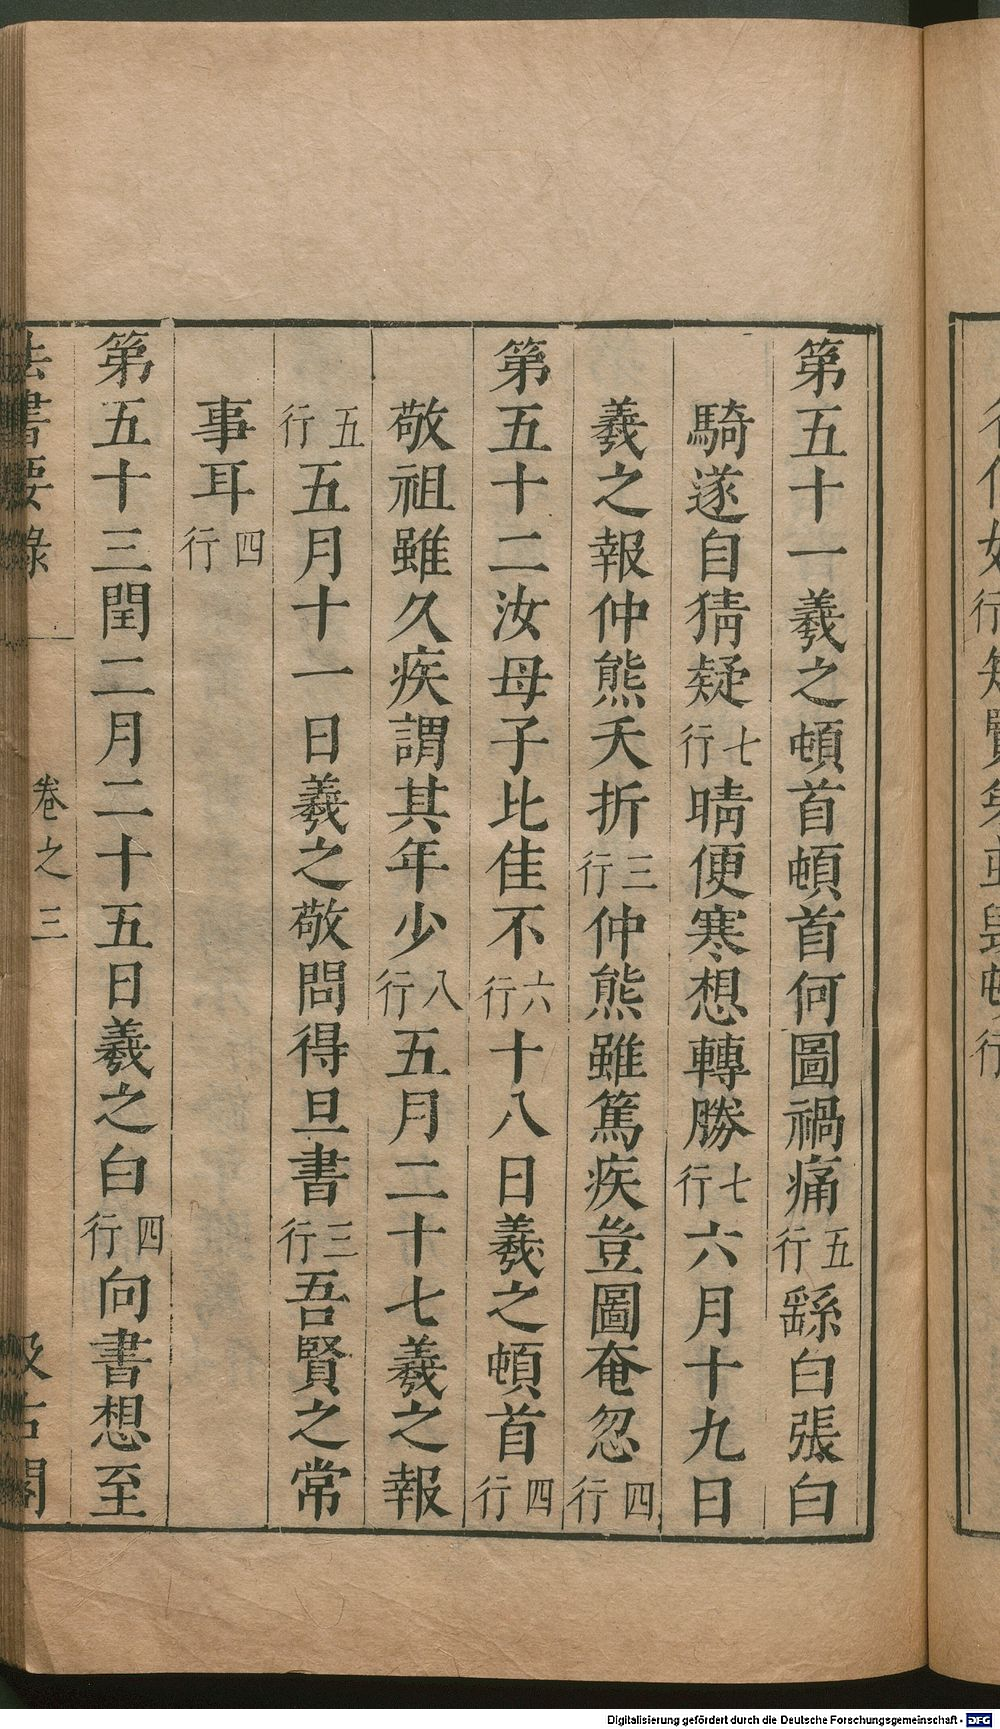 第五十一羲之頓首頓首何圖禍痛五行繇白張白
騎遂自猜疑七行晴便寒想轉勝七行六月十九日
羲之報仲熊夭折三行仲熊雖篤疾豈圖奄忽四行
第五十二汝母子比佳不六行十八日羲之頓首四行
敬祖雖久疾謂其年少八行五月二十七羲之報
五行五月十一日羲之敬問得旦書三行吾賢之常
事耳四行
第五十三閏二月二十五日羲之白四行向書想至
法書要錄 卷之三 汲古閣
Digitalisierung gefördert durch die Deutsche Forschungsgemeinschaft - DFG